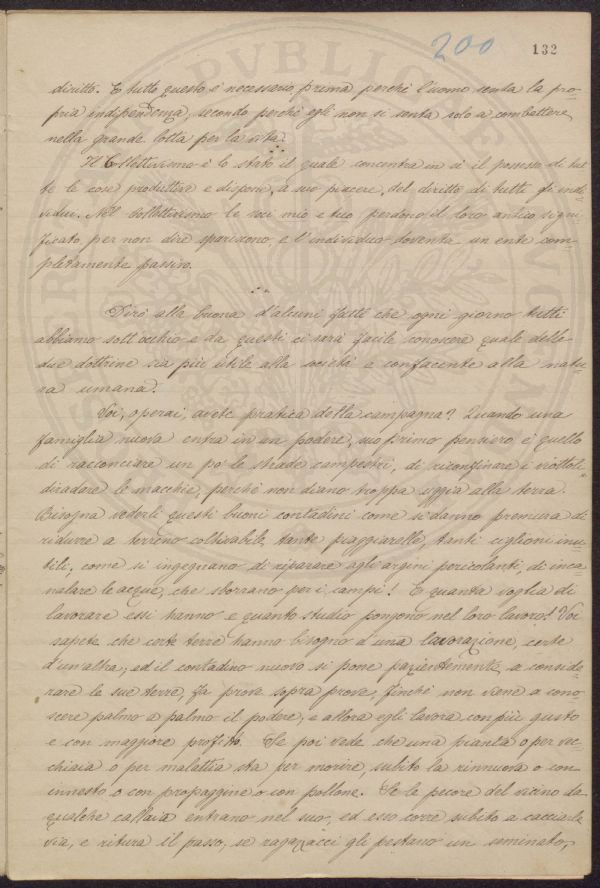 200 132
diritto. E tutto questo è necessario prima perchè l'uomo senta la pro=
pria indipendenza, secondo perchè egli non si senta solo a combattere
nella grande lotta per la vita.
Il Collettivismo è lo stato il quale concentra in sè il possesso di tut
te le cose produttive e dispone, a suo piacere, del diritto di tutti gl'indi
vidui. Nel Collettivismo le voci mio e tuo perdono il loro antico signi
ficato, per non dire spariscono, e l'individuo diventa un ente com=
pletamente passivo.
Dirò alla buona d'alcuni fatti che ogni giorno tutti
abbiamo sott'occhio e da questi ci sarà facile conoscere quale delle
due dottrine sia più utile alla società e confacente alla natu=
ra umana.
Voi, operai, avete pratica della campagna? Quando una
famiglia nuova entra in un podere, suo primo pensiero è quello
di racconciare un po' le strade campestri, di riconfinare i viottoli
diradare le macchie, perchè non diano troppa uggia alla terra.
Bisogna vederli questi buoni contadini come si danno premura di
ridurre a terreno coltivabile, tante piaggiarelle, tanti ciglioni inu=
tili, come si ingegnano di riparare agli argini pericolanti, di inca=
nalare le acque, che sborrano per i campi! E quanta voglia di
lavorare essi hanno e quanto studio pongono nel loro lavoro! Voi
sapete che certe terre hanno bisogno d'una lavorazione, certe
d'un'altra; ed il contadino nuovo si pone pazientemente, a conside=
rare le sue terre, fa prove sopra prove, finchè non viene a cono=
scere palmo a palmo il podere; e allora egli lavora con più gusto
e con maggiore profitto. Se poi vede che una pianta o per vec=
chiaia o per malattia sta per morire, subito la rinnuova o con
innesto o con propaggine o con pollone. Se le pecore del vicino da
qualche callaia entrano nel suo, ed esso corre subito a cacciarle
via, e ritura il passo; se ragazzacci gli pestano un seminato,